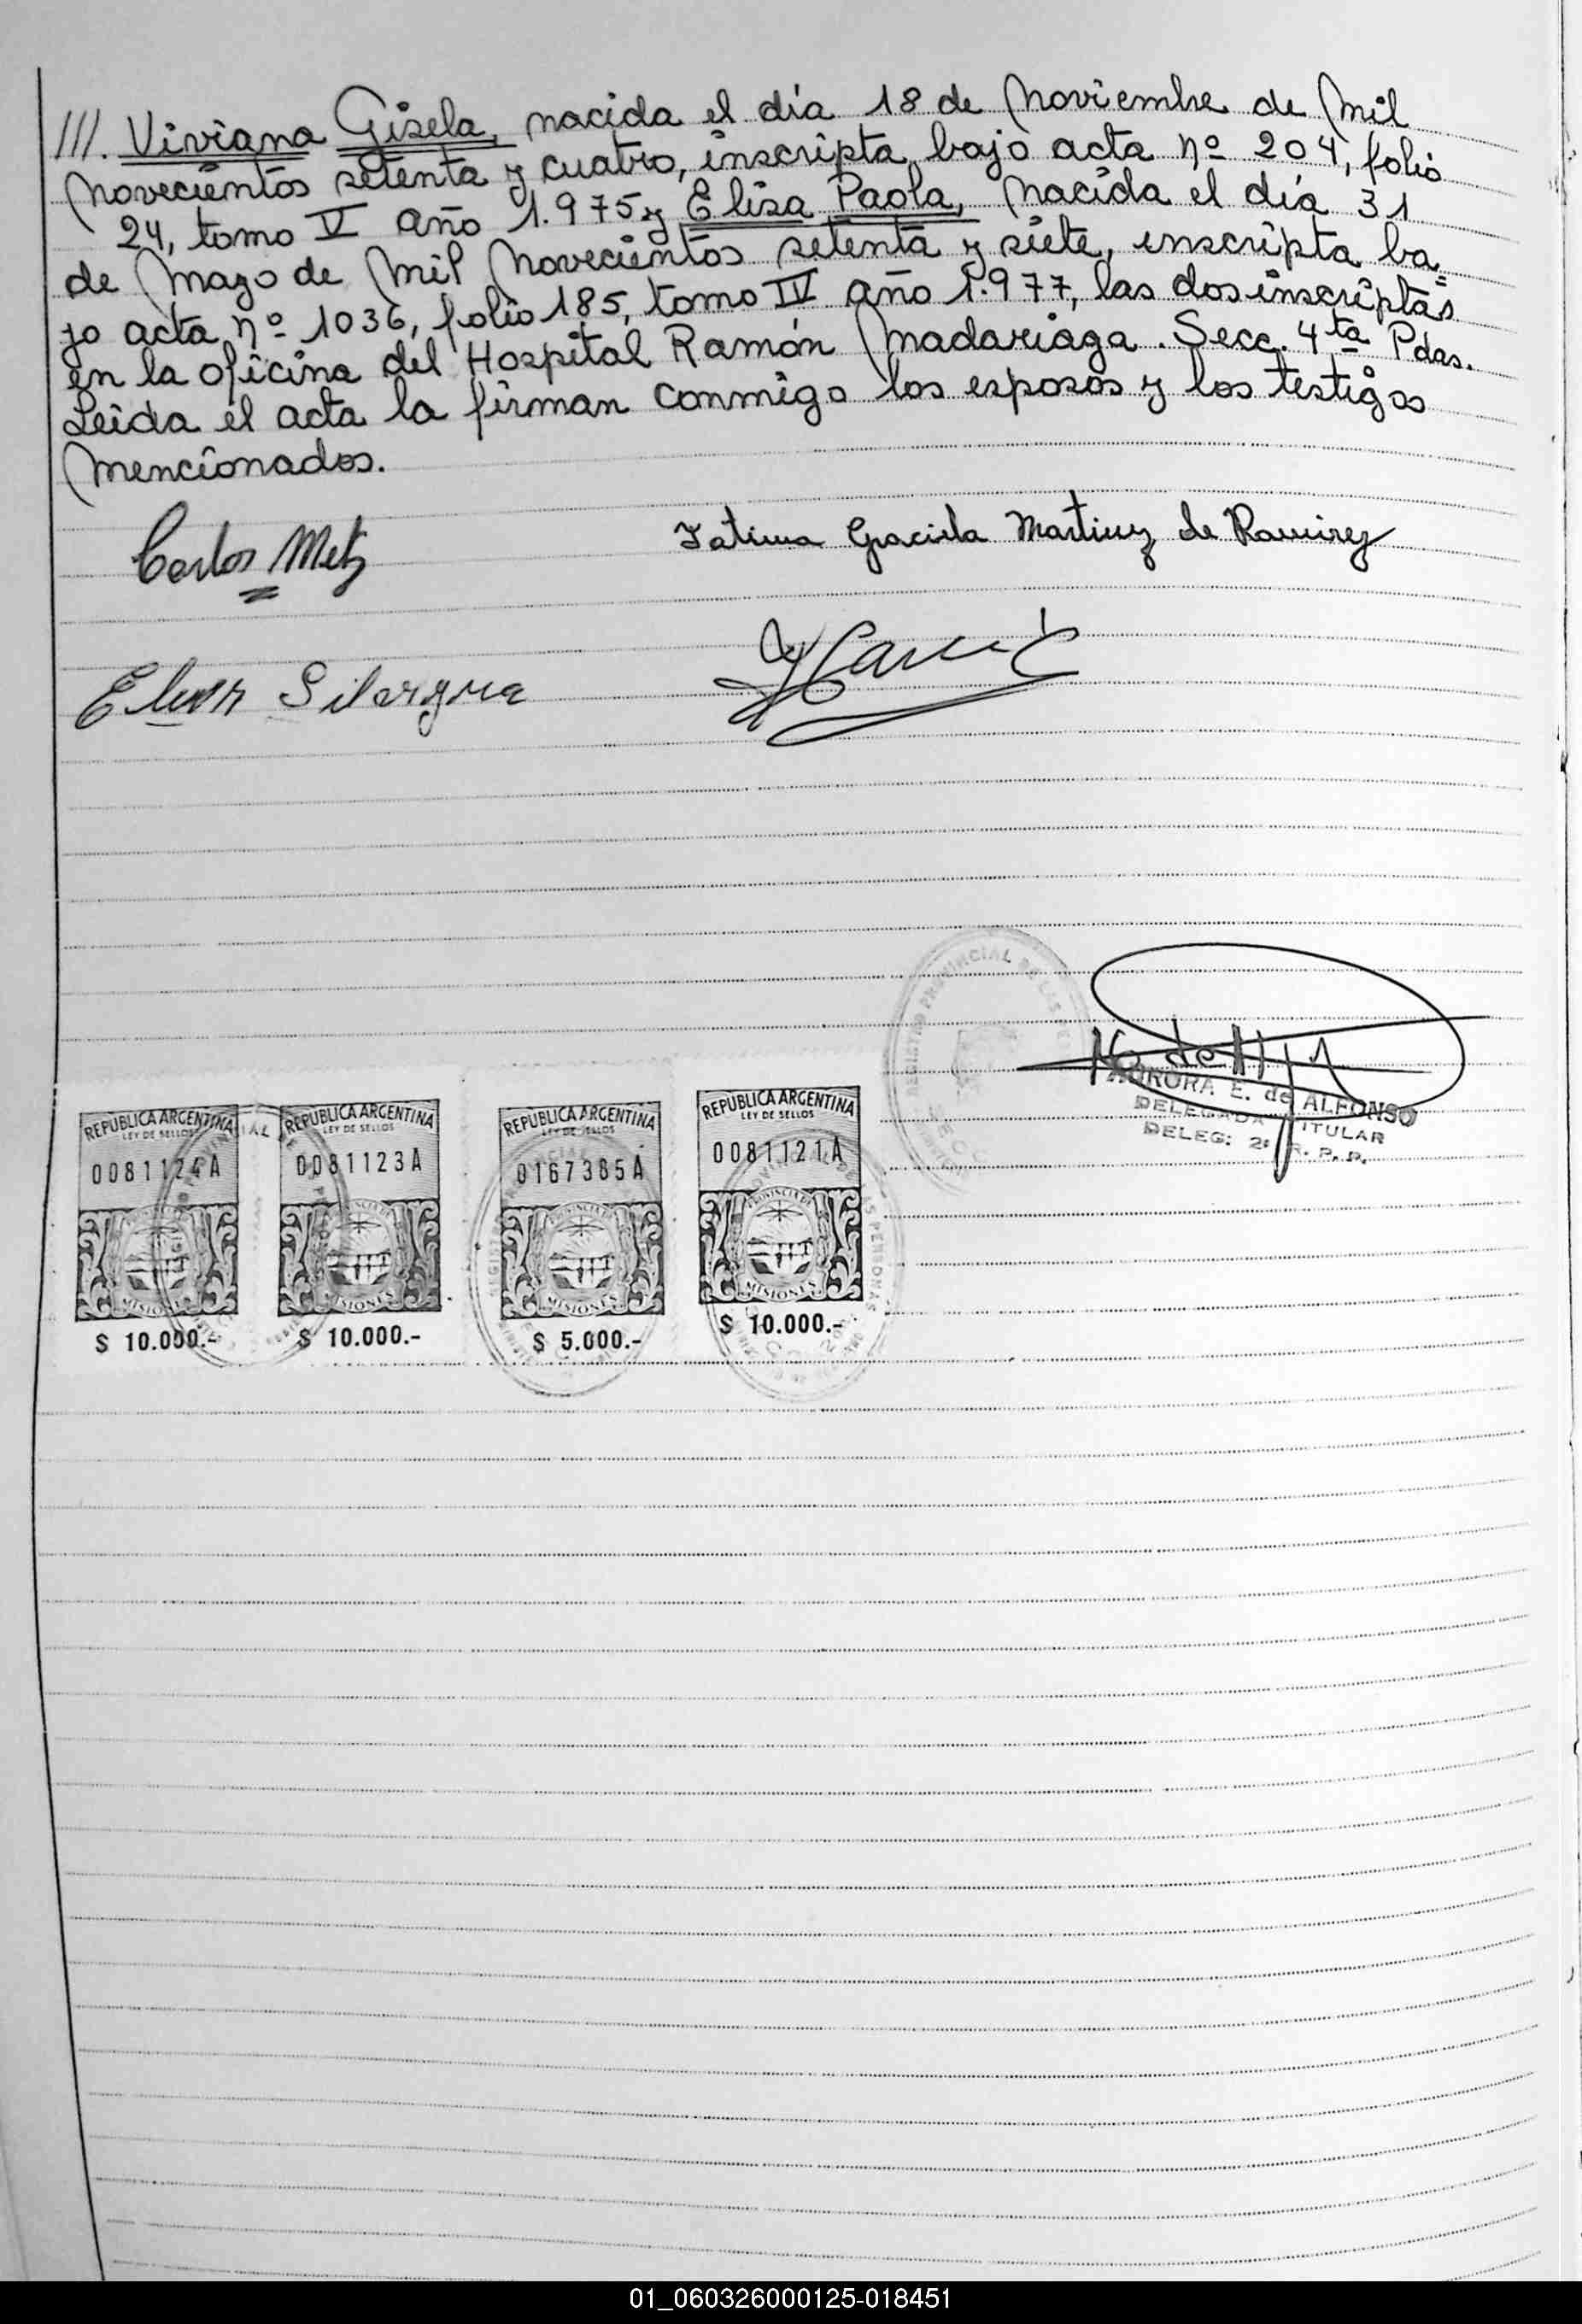 ///. Viviana Gisela, nacida el día 18 de Noviembre de Mil
Novecientos setenta y cuatro, inscripta bajo acta nº 204, folio
24, tomo V año 1.975 y Elisa Paola, Nacida el día 31
de Mayo de Mil Novecientos setenta y siete, inscripta ba=
jo acta nº 1036, folio 185, tomo IV año 1.977, las dos inscriptas
en la oficina del Hospital Ramón Madariaga. Secc. 4ta Pdas.
Leida el acta la firman conmigo los esposos y los testigos
Mencionados.
Carlos Metz
Fatima Graciela Martinez de Ramirez
REGISTRO PROVINCIAL DE LAS PE
AURORA E. de ALFONSO
DELEGADA TITULAR
DELEG: 2ª R. P. P.
REPUBLICA ARGENTINA
LEY DE SELLOS
0081124A
MISIONES
$ 10.000.-
REPUBLICA ARGENTINA
LEY DE SELLOS
0081123A
MISIONES
$ 10.000.-
REPUBLICA ARGENTINA
LEY DE SELLOS
0167365A
PROVINCIA DE
MISIONES
$ 5.000.-
REPUBLICA ARGENTINA
LEY DE SELLOS
0081121A
PROVINCIA DE
MISIONES
$ 10.000.-
LAS PERSONAS
01_060326000125-018451